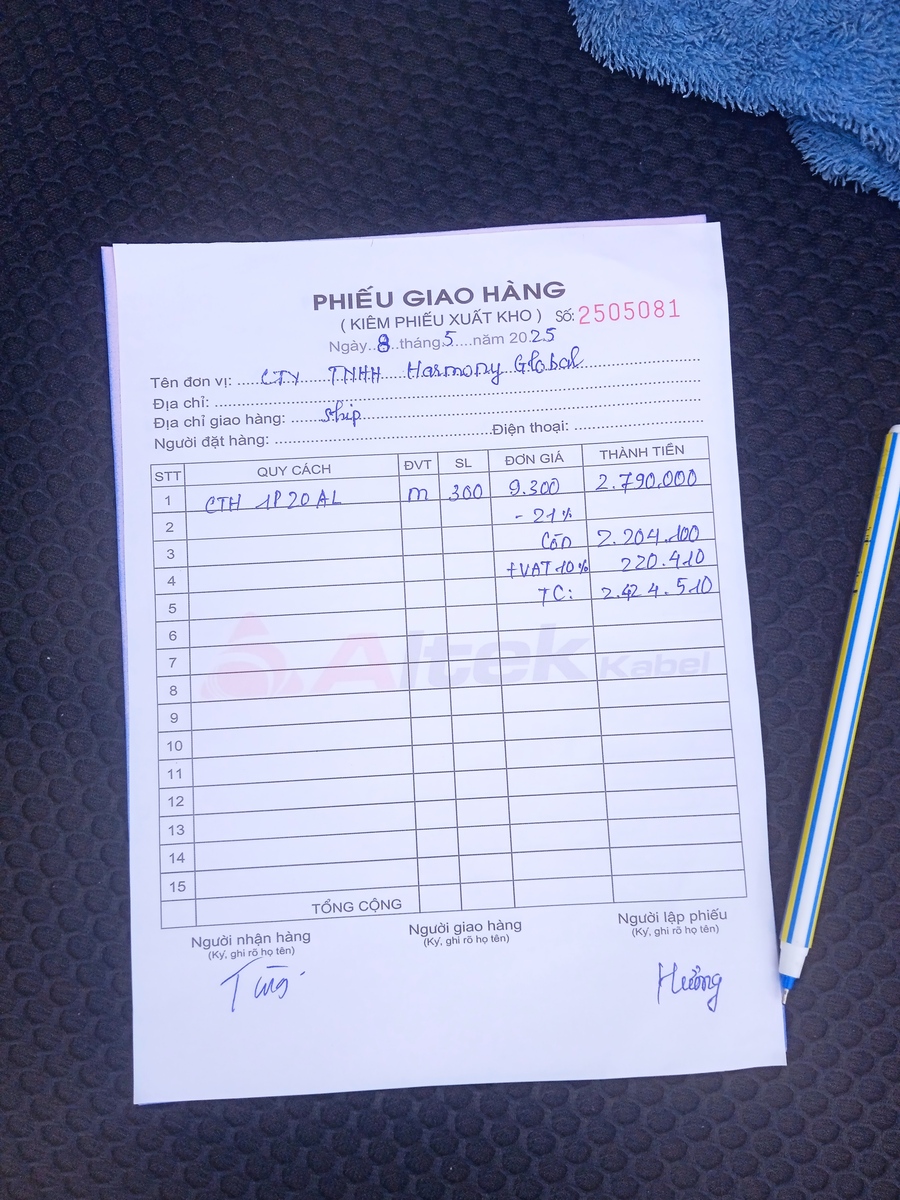 PHIẾU GIAO HÀNG
( KIÊM PHIẾU XUẤT KHO ) Số: 2505081
Ngày..8..tháng.5....năm 20.25
Tên đơn vị: CTY TNHH Harmony Global
Địa chỉ:
Địa chỉ giao hàng: Ship
Người đặt hàng: Điện thoại:
STT QUY CÁCH ĐVT SL ĐƠN GIÁ THÀNH TIỀN
1 CTH 1P20AL m 300 9.300 2.790.000
2 - 21%
3 Còn 2.204.100
4 +VAT 10% 220.410
5 TC: 2.424.510
6
7
8
9
10
11
12
13
14
15
Altek Kabel
TỔNG CỘNG
Người nhận hàng Người giao hàng Người lập phiếu
(Ký, ghi rõ họ tên) (Ký, ghi rõ họ tên) (Ký, ghi rõ họ tên)
Hưởng